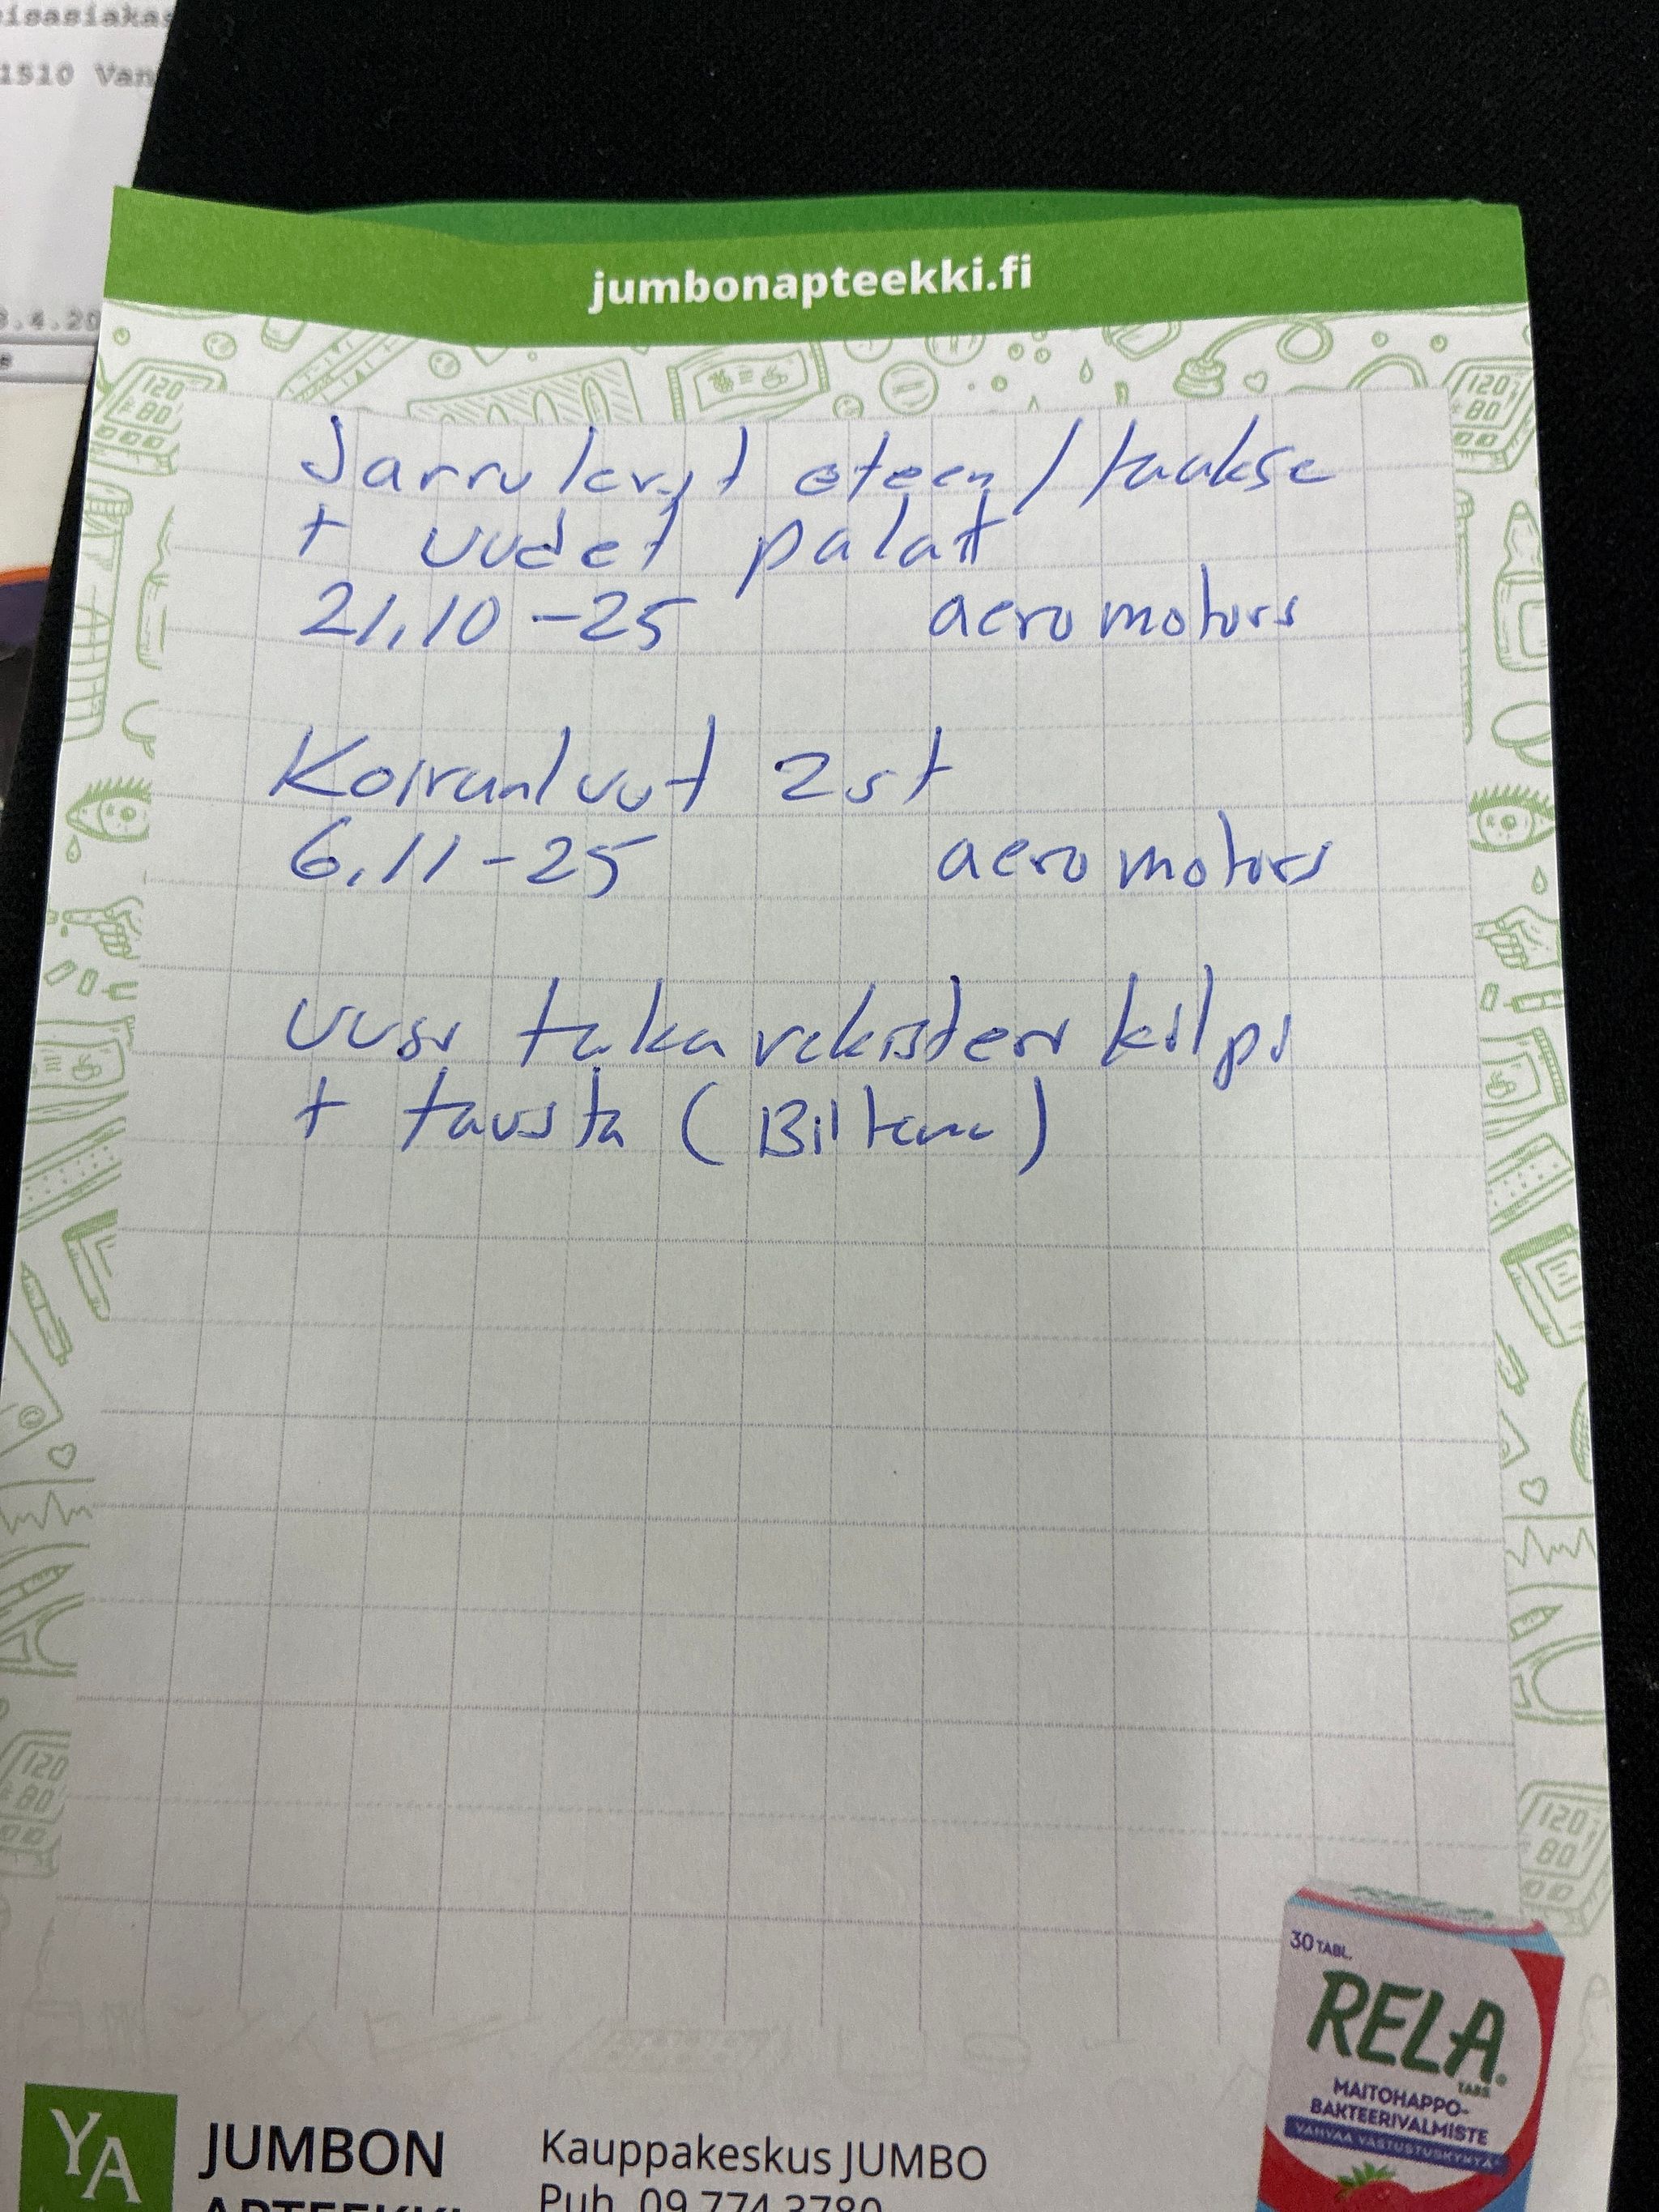 eisasiakas
1510 Van
3.4.20
e
jumbonapteekki.fi
120
80
120
80
Jarrulevyt eteen / taakse
+ uudet palat
21,10 -25 aeromotors
Koiranluut 2st
6,11-25 aeromotors
uusi takarekisteri kilpi
+ tausta (Biltema)
120
80
120
80
30 TABL.
RELA
TABS
MAITOHAPPO-
BAKTEERIVALMISTE
VAHVAA VASTUSTUSKYKYÄ
YA
JUMBON
APTEEKKI
Kauppakeskus JUMBO
Puh. 09 774 3780